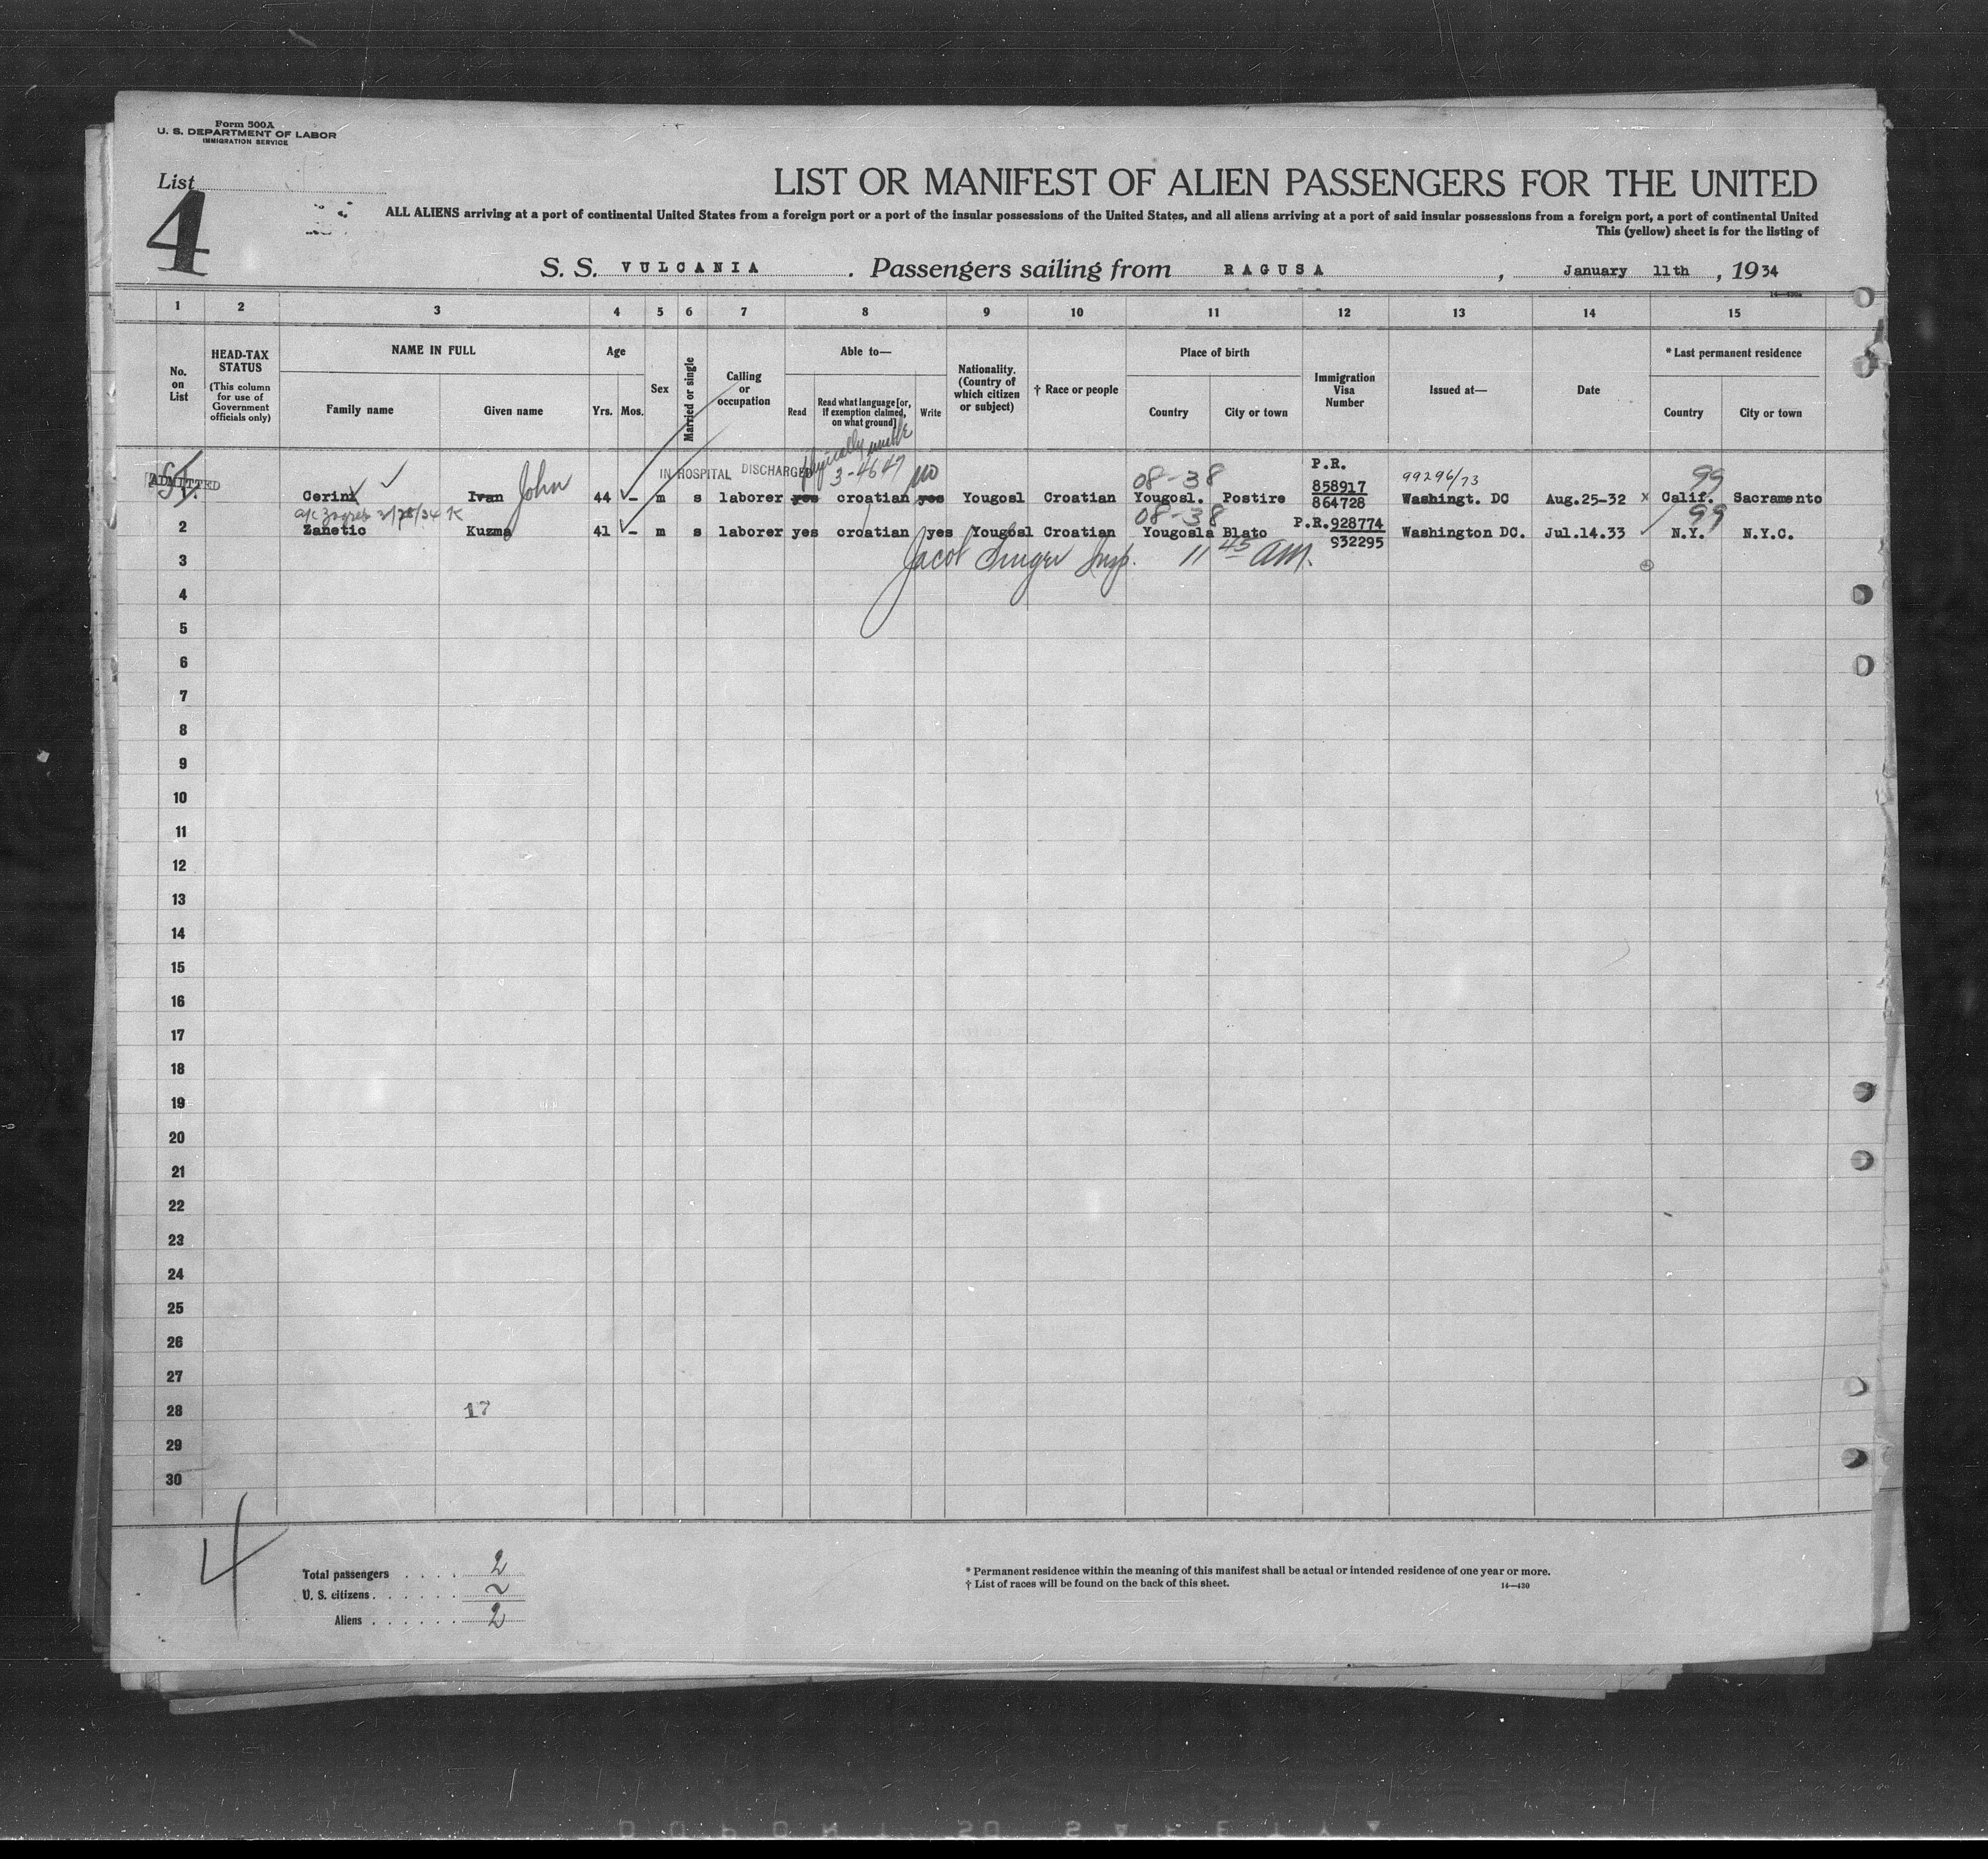 Form 500A
U. S. DEPARTMENT OF LABOR
IMMIGRATION SERVICE
List
4
LIST OR MANIFEST OF ALIEN PASSENGERS FOR THE UNITED
ALL ALIENS arriving at a port of continental United States from a foreign port or a port of the insular possessions of the United States, and all aliens arriving at a port of said insular possessions from a foreign port, a port of continental United
This (yellow) sheet is for the listing of
S. S. VULCANIA . Passengers sailing from RAGUSA , January 11th , 1934
14—430a
1 2 3 4 5 6 7 8 9 10 11 12 13 14 15
No. on List
HEAD-TAX STATUS
(This column for use of Government officials only)
NAME IN FULL
Family name
Given name
Age
Yrs.
Mos.
Sex
Married or single
Calling or occupation
Able to—
Read
Read what language [or, if exemption claimed, on what ground]
Write
Nationality. (Country of which citizen or subject)
† Race or people
Place of birth
Country
City or town
Immigration Visa Number
Issued at—
Date
* Last permanent residence
Country
City or town
ADMITTED
IN HOSPITAL DISCHARGED physically unable 3-4647 no 08-38 P.R. 99296/73 99
Cerini Ivan John 44 - m s laborer yes croatian yes Yougosl Croatian Yougosl. Postire 858917 864728 Washingt. DC Aug.25-32 x Calif. Sacramento
Zagreb 08-38 99
2 Zanetic Kuzma 41 - m s laborer yes croatian yes Yougosl Croatian Yougosla Blato P.R.928774 932295 Washington DC. Jul.14.33 N.Y. N.Y.C.
3 Jacob Insp. 11 45 AM.
4
5
6
7
8
9
10
11
12
13
14
15
16
17
18
19
20
21
22
23
24
25
26
27
28 17
29
30
4
Total passengers . . . . 2
U. S. citizens . . . . . .
Aliens . . . . . . 2
* Permanent residence within the meaning of this manifest shall be actual or intended residence of one year or more.
† List of races will be found on the back of this sheet.
14—430
DUPONT SO SAFETY